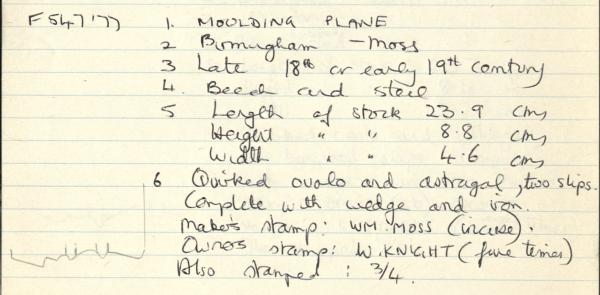 F547'77 1. MOULDING PLANE
2 Birmingham - Moss
3 Late 18th or early 19th century
4. Beech and steel
5 Length of stock 23.9 cms
Height " " 8.8 cms
Width " " 4.6 cms
6 Quirked ovolo and astragal, two slips.
Complete with wedge and iron.
Maker's stamp: WM. MOSS (incuse).
Owner's stamp: W. KNIGHT (five times)
Also stamped : 3/4.